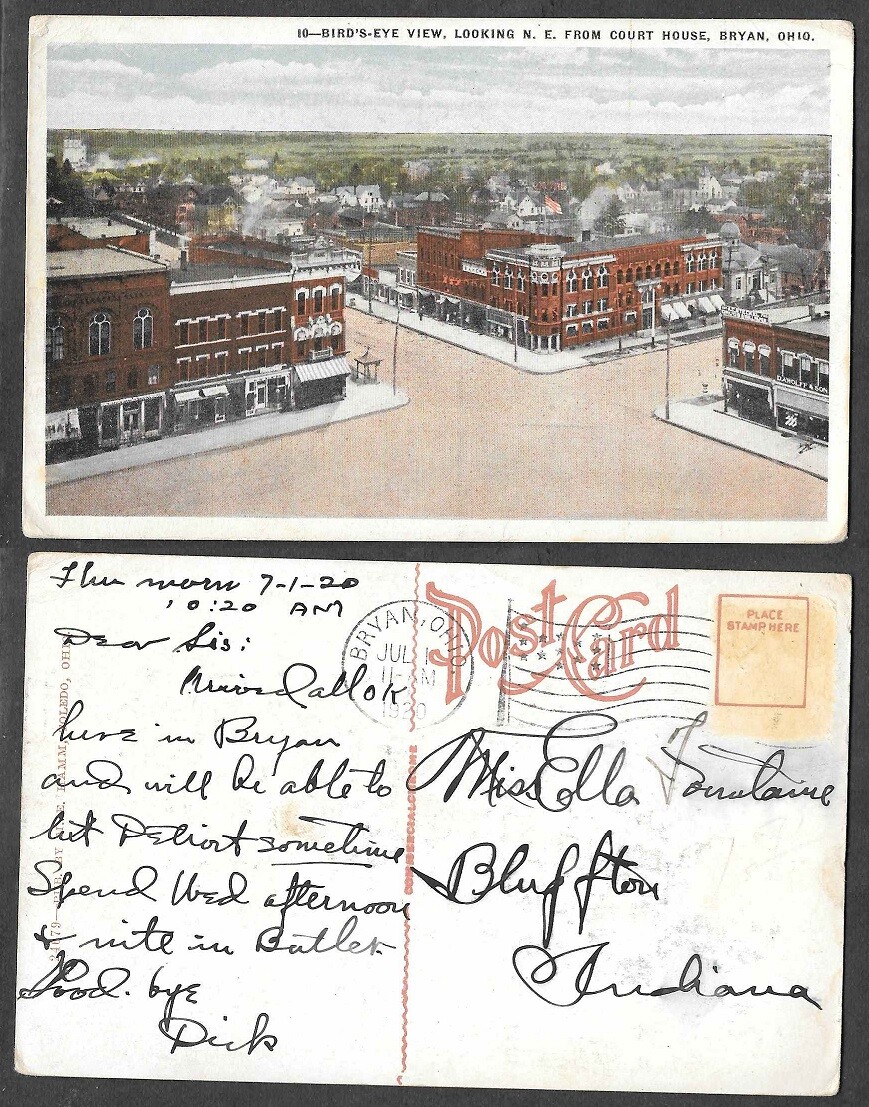 10—BIRD'S-EYE VIEW, LOOKING N. E. FROM COURT HOUSE, BRYAN, OHIO.
D.WOLFF & SON
Thu morn 7-1-20
10:20 AM
Dear Sis:
Arrived all OK
here in Bryan
and will be able to
hit Detroit sometime
Spend Wed afternoon
& nite in Butler
Good. bye
Dick
TOLEDO, OHIO
COMMERCIALCHROME
Post Card
BRYAN, OHIO
JUL 1
11-AM
1920
PLACE
STAMP HERE
Miss Ella Fontaine
Bluffton
Indiana